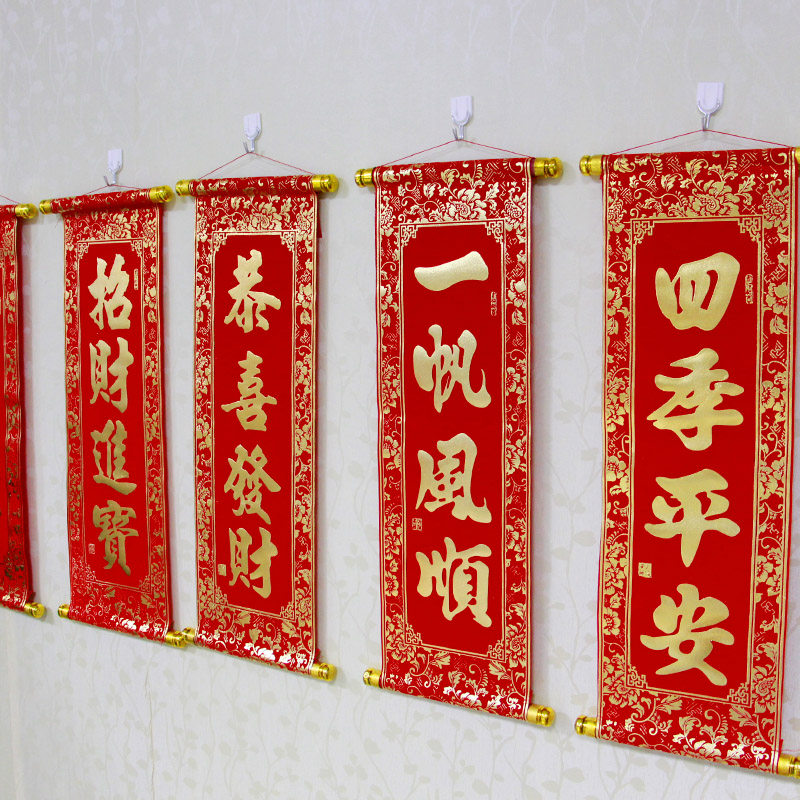 招財進寶
恭喜發財
一帆風順
四季平安